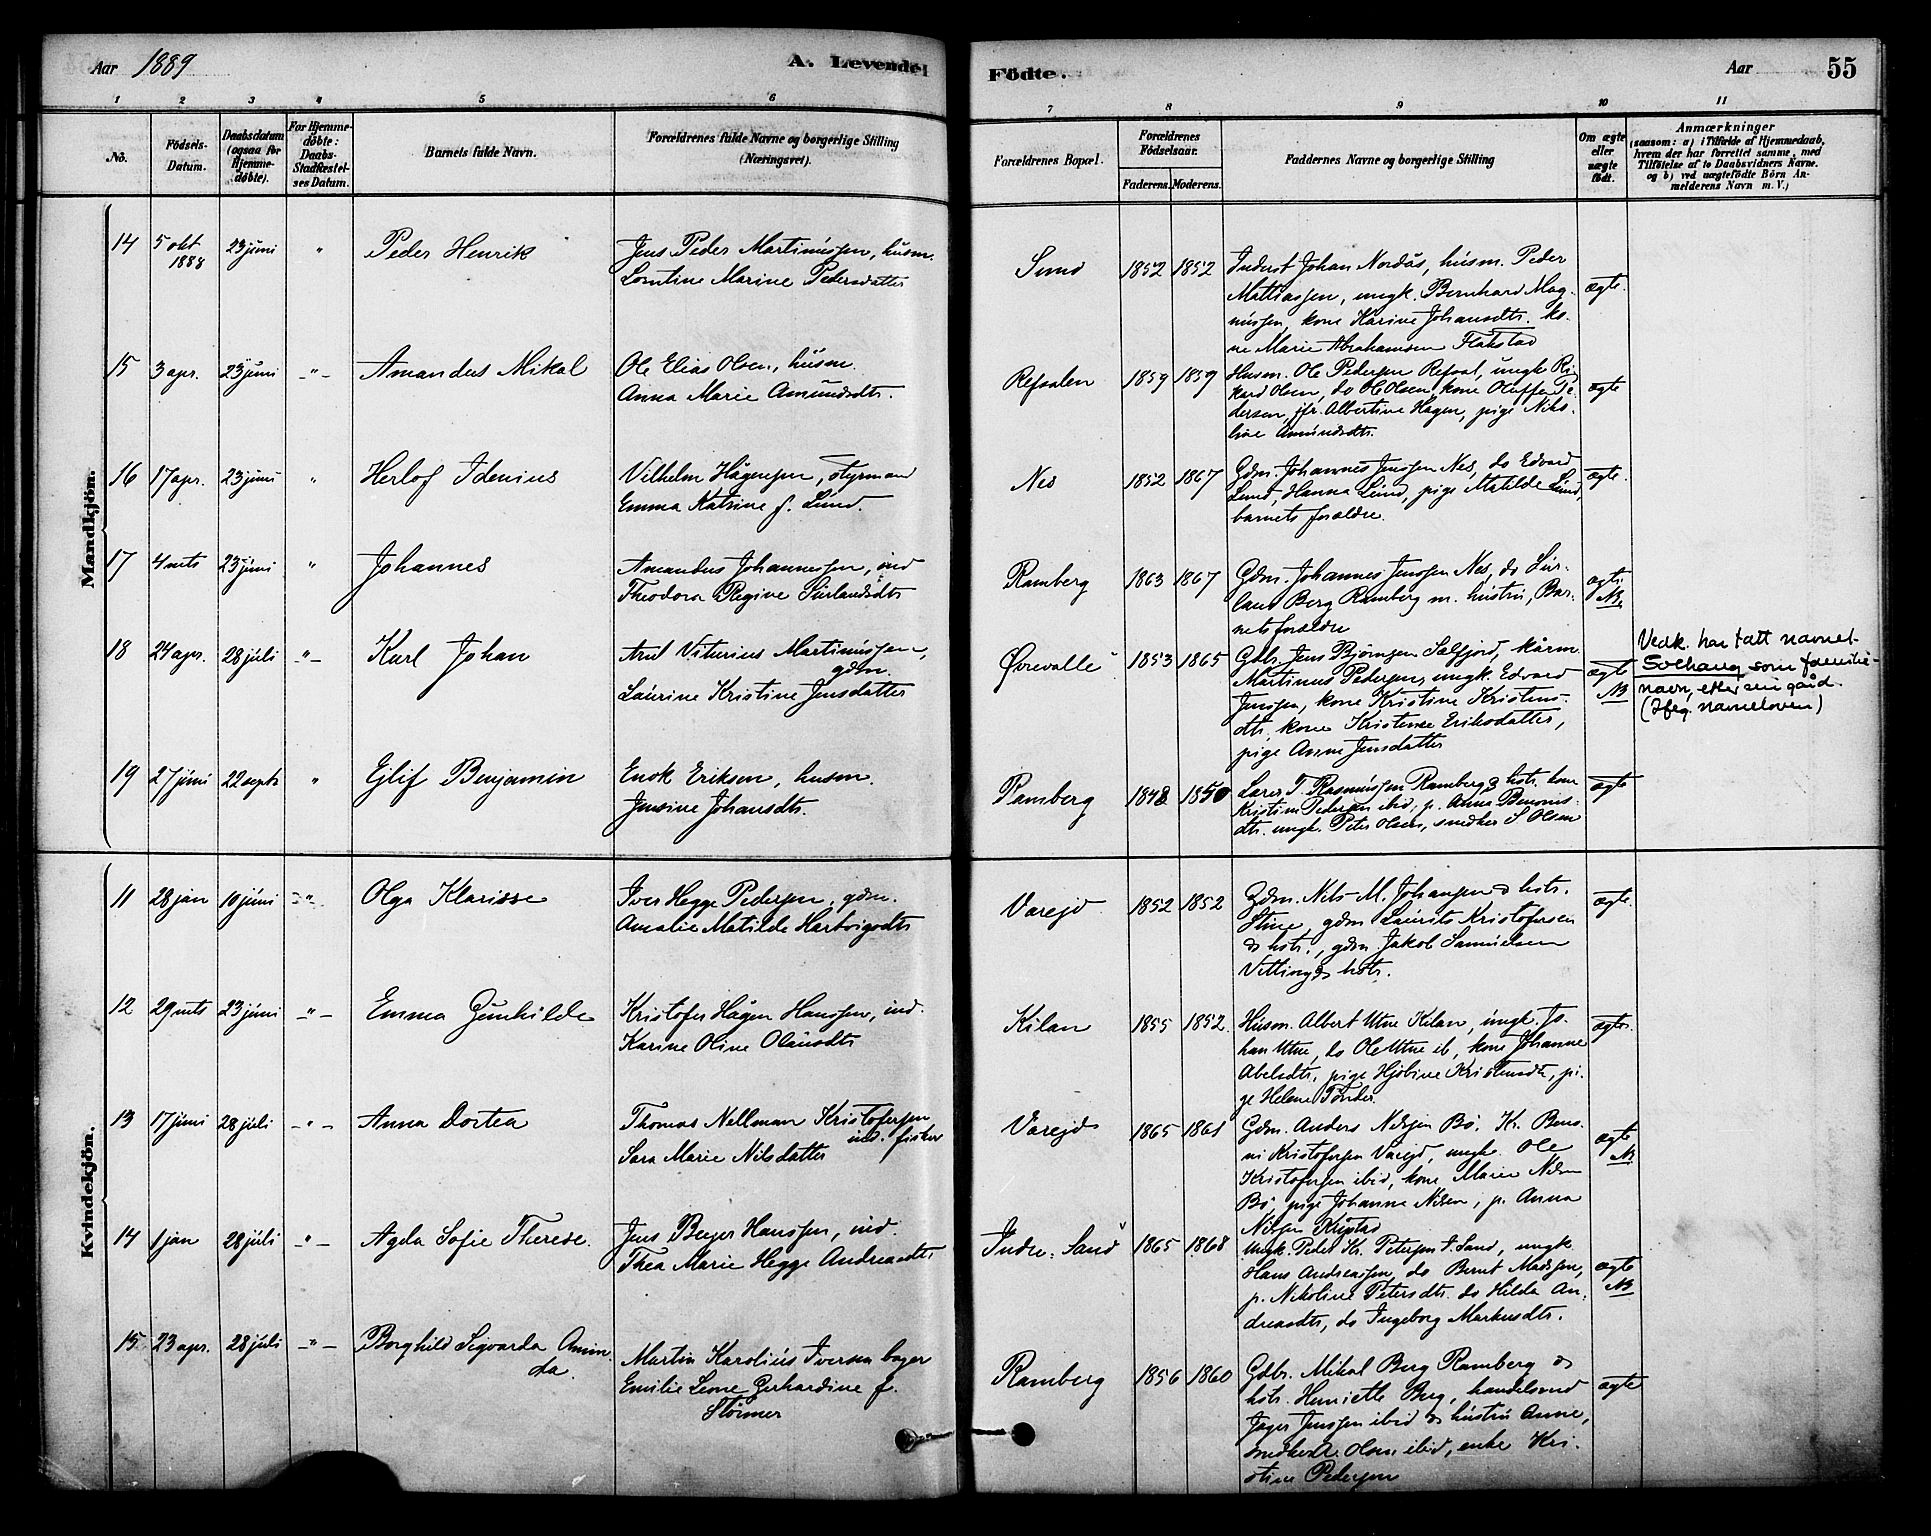 Aar 1889
A. Levende
Födte.
Aar
55
1
2
3
4
5
6
7
8
9
10
11
No.
Fødsels-
Datum.
Daabsdatum
(ogsaa for
Hjemme-
døbte).
For Hjemme-
døbte:
Daabs-
Stadfæstel-
ses Datum.
Barnets fulde Navn.
Forældrenes fulde Navne og borgerlige Stilling
(Næringsvei).
Forældrenes Bopæl.
Forældrenes
Fødselsaar.
Faderens.
Moderens.
Faddernes Navne og borgerlige Stilling
Om ægte
eller
uægte
født.
Anmærkninger
(saasom: a) i Tilfælde af Hjemmedaab,
hvem der har forrettet samme, med
Tilføielse af to Daabsvidners Navne.
og b) ved uægtefødte Börn An-
melderens Navn m. V.)
Mandkjön.
14
5 okt
1888
23 juni
"
Peder Henrik
Jens Peder Martinussen, husm.
Lorntine Marine Pedersdatter
Sund
1852
1852
Inderst Johan Nordås, husm. Peder
Mattiassen, ungk. Bernhard Mag-
nussen, kone Karine Johansdtr. ko-
ne Marie Abrahamsen Flakstad
ægte.
15
3 apr.
23 juni
-"-
Amandus Mikal
Ole Elias Olsen, husm.
Anna Marie Amundsdtr.
Refsalen
1859
1859
Husm. Ole Pedersen Refsal, ungk Ri-
kard Olsen, do Ole Olsen, kone Oluffa Pe-
dersen, jfr. Albertine Hagen, pige Niko-
line Amundsdtr.
ægte
16
17 apr.
23 juni
"
Herlof Idenius
Vilhelm Hågensen, styrmand
Emma Katrine f. Lund.
Nes
1852
1867
Gdm. Johannes Jenssen Nes, do Edvard
Lund, Hanna Lund, pige Matilde Lund,
barnets forældre.
ægte.
17
4 mts
23 juni
"
Johannes
Amandus Johannessen, ind
Theodora Regine Surlandsdtr
Ramberg
1863
1867
Gdm. Johannes Jenssen Nes, do Sur-
land Berg Ramberg m. hustru, Bar-
nets forældre
ægte.
NB.
18
24 apr.
28 juli
-"-
Karl Johan
Arnt Viturius Martinussen,
gdm.
Laurine Kristine Jensdatter
Ørevalle
1853
1865
Gdbr. Jens Bjørnsen Selfjord, kårm.
Martinus Pedersen, ungk. Edvard
Jenssen, kone Kristine Kristens-
dtr, kone Kristense Eriksdatter,
pige Anne Jensdatter
ægte
NB
Vedk. har tatt navnet
Solhaug som familie-
navn, etter sin gård.
(Iføg. navneloven)
19
27 juni
22 septr
"
Ejlif Benjamin
Enok Eriksen, husm.
Jensine Johansdtr.
Ramberg
1848
1850
Lærer T. Rasmussen Ramberg & hstr. kone
Kristine Pedersen ibid, p. Anna Benonis-
dtr. ungk. Peter Olsen, snedker S Olsen
ægte
Kvindekjön.
11
28 jan
10 juni
-"-
Olga Klarisse
Iver Hegge Pedersen, gdm.
Amalie Matilde Hartvigsdtr
Varejd
1852
1852
Gdm. Nels M. Johansen & hstr.
Stine, gdm Laurits Kristofersen
& hstr., gdm. Jakob Samuelsen
Vitting & hstr.
ægte.
12
29 mts
23 juni
-"-
Emma Gunhilde
Kristofer Hågen Hanssen, ind.
Karine Oline Olausdtr
Kilan
1855
1852.
Husm. Albert Utne Kilan, ungk. Jo-
han Utne, do Ole Utne ib, kone Johanne
Abelsdtr, pige Hjobine Kristensdtr, pi-
ge Helene Tønder.
ægte.
13
17 juni
28 juli
-"-
Anna Dortea
Thomas Nellman Kristofersen
ind. fisker
Sara Marie Nilsdatter
Varejd
1865
1861
Gdm. Anders Nilsen Bø, K. Beno-
ni Kristofersen Varejd, ungk. Ole
Kristofersen ibid, kone Marie Nilsen
Bø, pige Johanna Nilsen, p. Anna
Nilsen Krystad
ægte
NB
14
1 jan
28 juli
-"-
Agda Sofie Therese.
Jens Beyer Hanssen, ind.
Thea Marie Hegge Andreasdtr.
Indre: Sand
1865
1868
ungk. Peder Kr. Petersen I. Sand, ungk.
Hans Andreassen, do Bernt Madsen,
p. Nikoline Petersdtr. do Hilda An-
dreasdtr, do Ingeborg Markusdtr.
ægte
NB
15
23 apr.
28 juli
-"-
Borghild Sigvarda Amin-
da.
Martin Karolius Iversen bager
Emilie Leone Gerhardine f.
Størmer
Ramberg
1856
1860
Gdbr. Mikal Berg Ramberg &
hstr. Henriette Berg, handelsmd
Jager Jenssen ibid & hustru Anne,
snedker Olsen ibid, enke Kri-
stine Pedersen
ægte